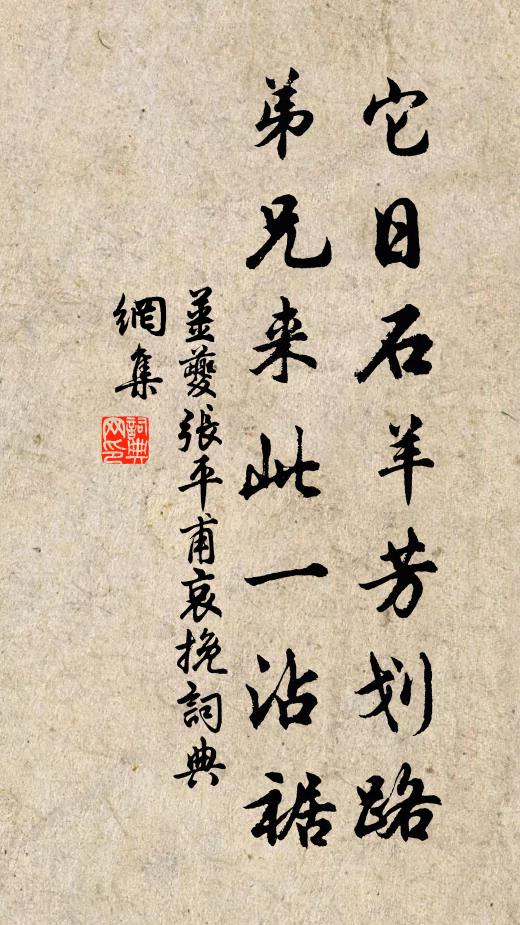 它日石羊芳划路
弟兄来此一沾裾
姜夔張平甫哀挽詞典
網集
詞典網印